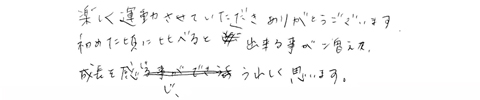 楽しく運動させていただきありがとうございます。
初めた頃に比べると 出来る事が増えた。
成長を感じ、うれしく思います。